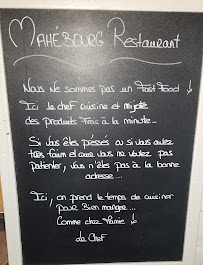 MAHÉBOURG Restaurant
Nous Ne sommes pas un Fast Food !
Ici le chef cuisine et mijote
des produits Frais à la minute...
Si vous êtes pressés ou si vous avez
très faim et que vous ne voulez pas
patienter, vous n'êtes pas à la bonne
adresse...
Ici, on prend le temps de cuisiner
pour Bien manger...
Comme chez Mamie !
Le Chef